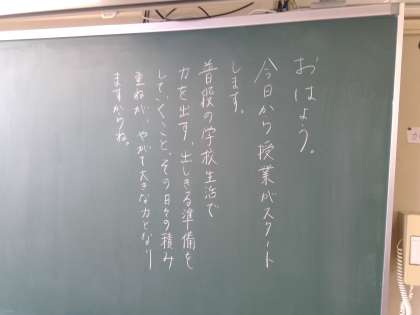 おはよう。
今日から授業がスタート
します。
普段の学校生活で
力を出す、出しきる準備を
していくこと、その日々の積み
重ねが、やがて大きな力となり
ますからね。